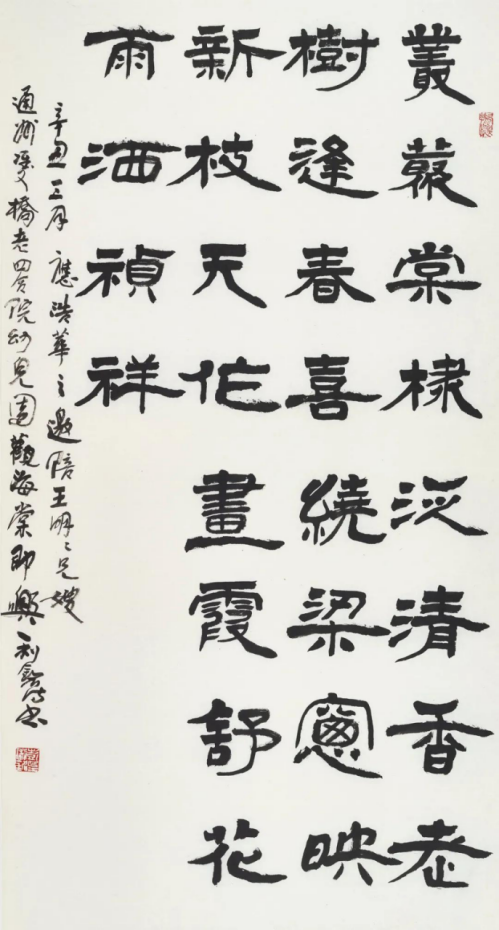 叢藂棠棣泛清香老
樹逢春喜繞梁窗映
新枝天作畫霞舒花
雨洒禎祥
辛丑三月應浩華之邀陪王明〻兄嫂
通州雙橋老四合院幼兒園觀海棠即興利